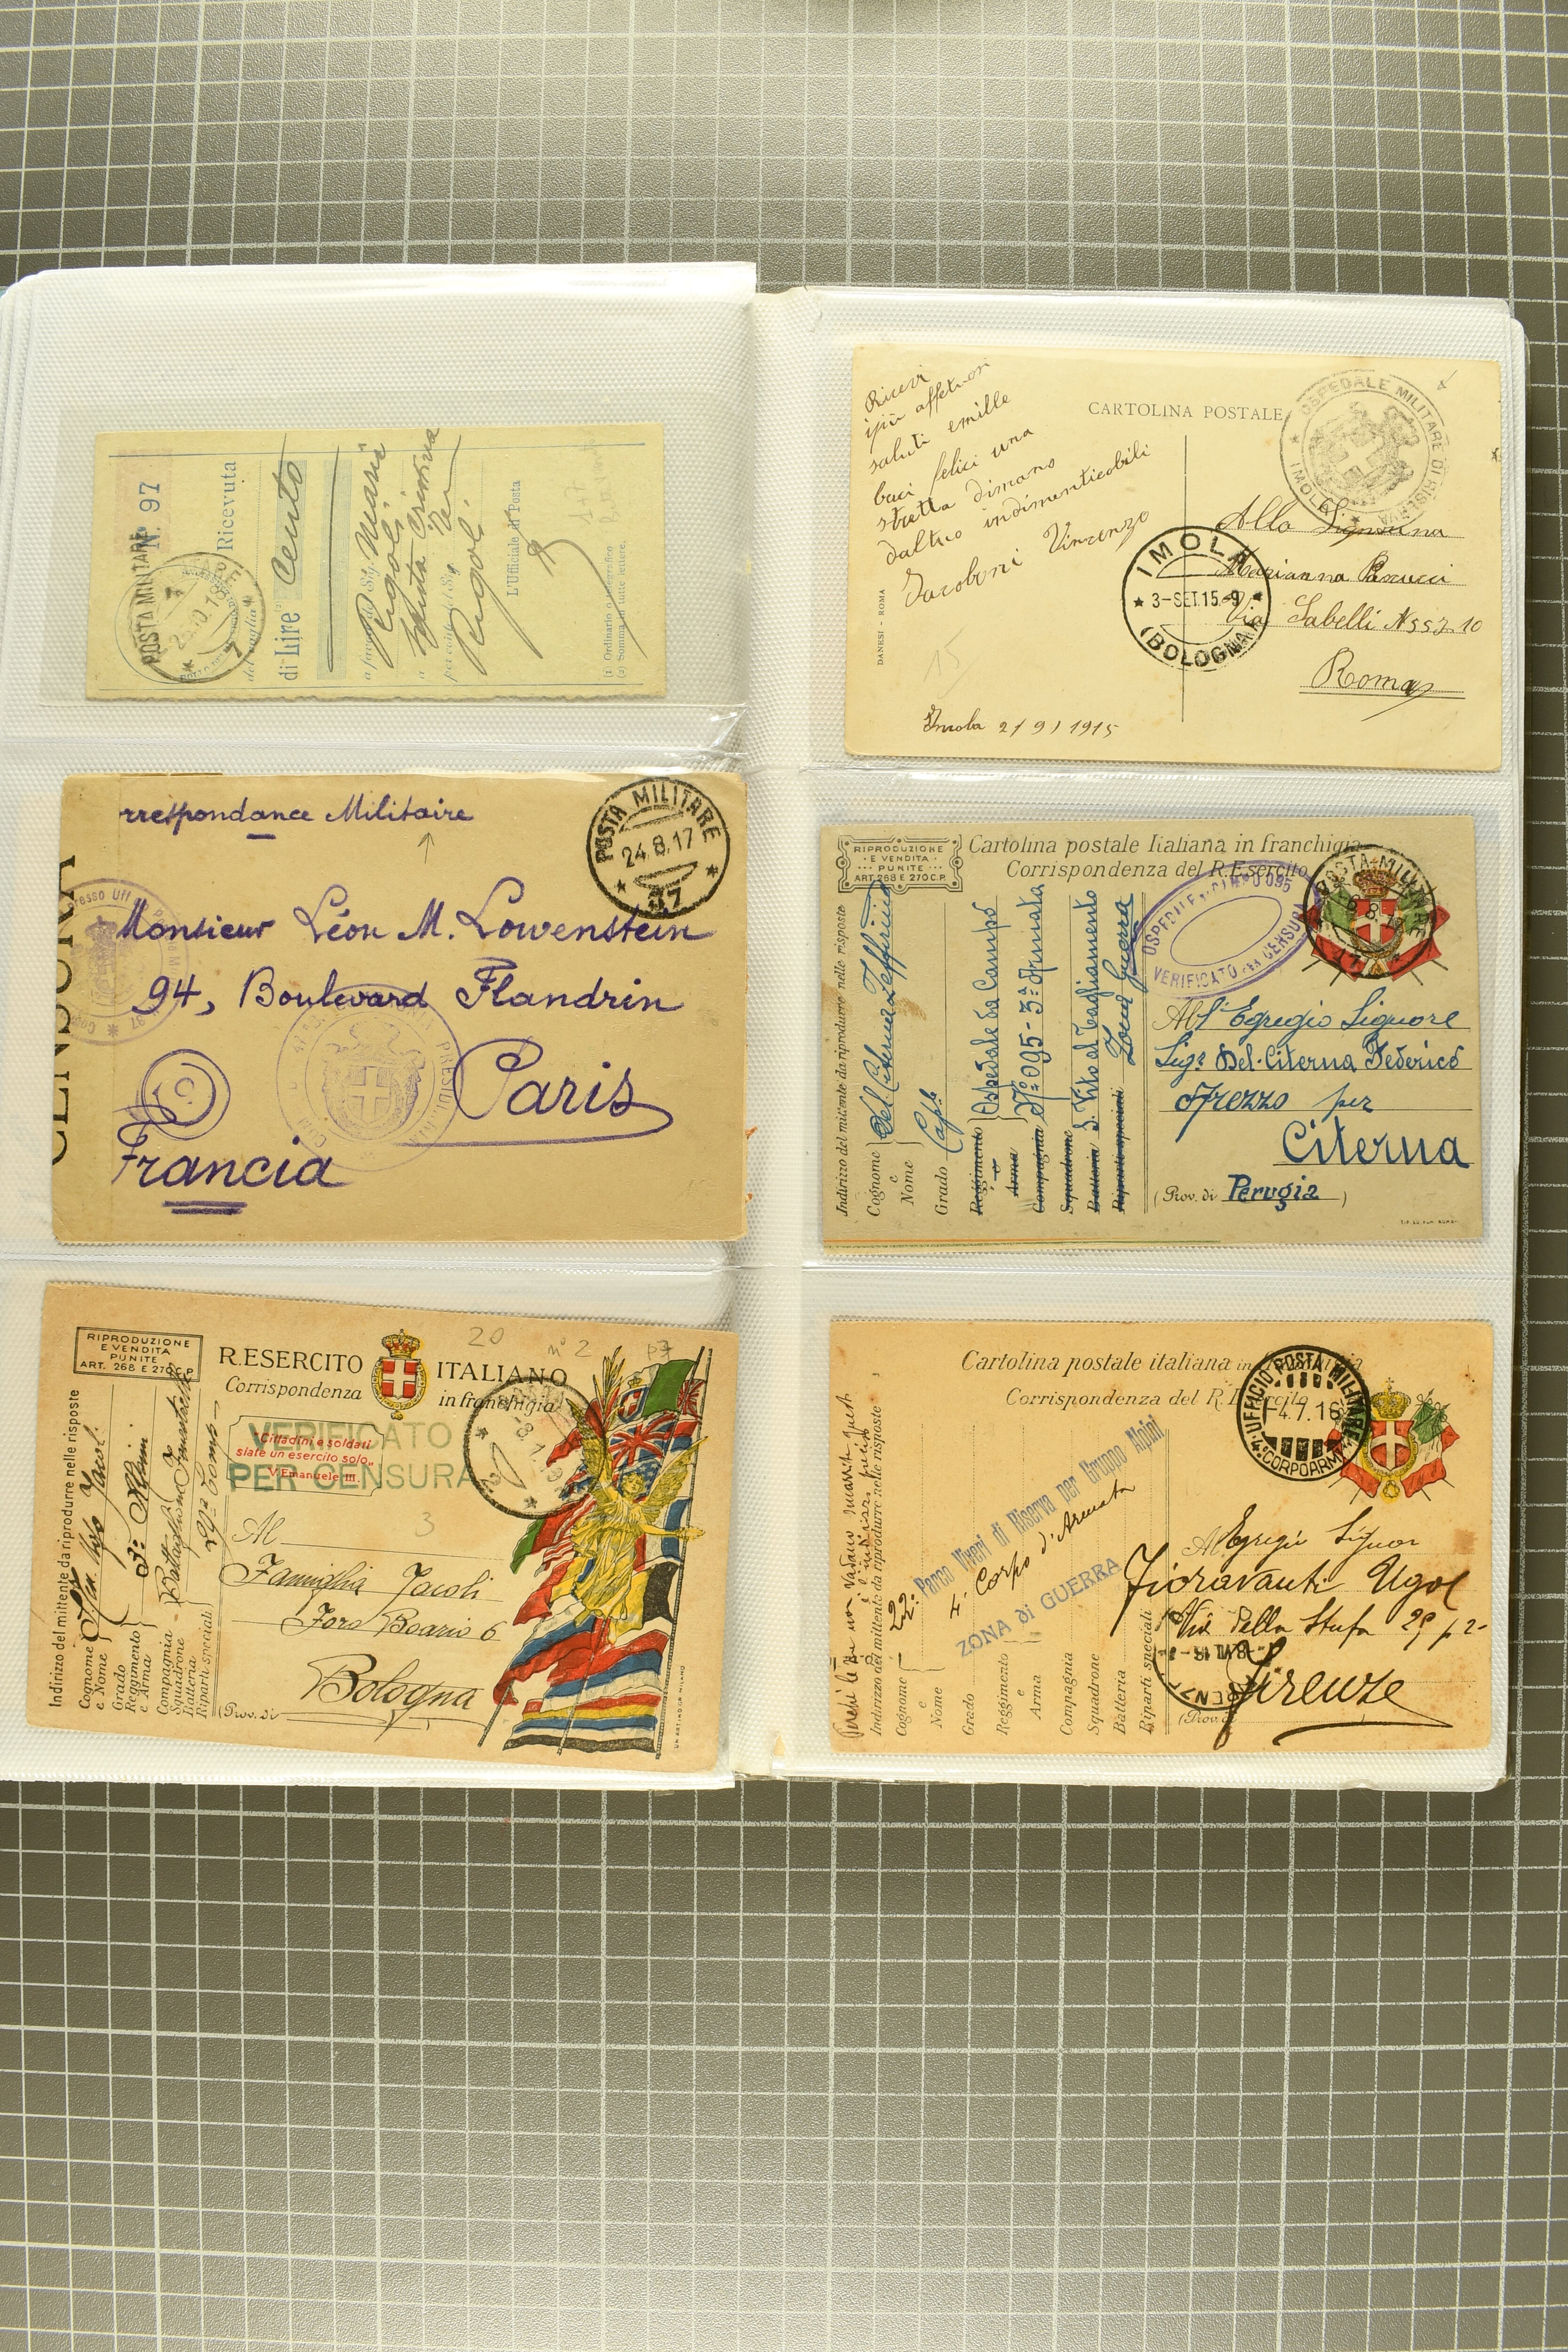 N. 97
POSTA MILITARE
7
Ricevuta
del vaglia
di Lire Cento
Rigoli
Rigoli
L'Ufficiale di Posta
(1) Ordinario o telegrafico.
(2) Somma in tutte lettere.
rrespondance Militaire
POSTA MILITARE
24.8.17
37
CENSURA
Monsieur Léon M. Lowenstein
94, Boulevard Flandrin
Paris
Francia
RIPRODUZIONE
E VENDITA
PUNITE
ART. 268 E 270 C.P.
R. ESERCITO ITALIANO
Corrispondenza in franchigia
20
n° 2
VERIFICATO
PER CENSURA
"Cittadini e soldati
siate un esercito solo"
V. Emanuele III.
Indirizzo del mittente da riprodurre nelle risposte
Cognome
e Nome
Grado
Reggimento
e Arma
3° Alpini
Compagnia
Squadrone
Batteria
Riparti speciali
Al
3
Famiglia Jacoli
Foro Boario 6
Bologna
(Prov. di
Ricevi
i più affetuosi
saluti emille
baci felici una
stretta dimano
daltuo indimenticobili
Jacoboni Vincenzo
CARTOLINA POSTALE
OSPEDALE MILITARE DI RISERVA
IMOLA
IMOLA
3-SET.15-9
(BOLOGNA)
Alla Signorina
Marianna
Via Sabelli
Roma
DANESI - ROMA
15
Imola 2/9/1915
RIPRODUZIONE
E VENDITA
PUNITE
ART. 268 E 270 C.P.
Cartolina postale Italiana in franchigia
Corrispondenza del R. Esercito
POSTA MILITARE
VERIFICATO PER CENSURA
Indirizzo del mittente da riprodurre nelle risposte
Cognome
e
Nome
Del Citerna Zeffirino
Grado Cap.le
Reggimento
e
Arma
Ospedale da Campo
Compagnia N° 095 - 3ª Armata
Squadrone
Batteria S. Vito al Tagliamento
Riparti speciali Zona Guerra
All' Egregio Signore
Sig. Del-Citerna Federico
per
Citerna
(Prov. di Perugia)
Cartolina postale italiana in franchigia
Corrispondenza del R. Esercito
UFFICIO POSTA MILITARE
4.7.16
4° CORPO ARM
Indirizzo del mittente da riprodurre nelle risposte
22° Parco Viveri di Riserva per Gruppo Alpini
4° Corpo d'Armata
ZONA di GUERRA
Cognome
e
Nome
Grado
Reggimento
e
Arma
Compagnia
Squadrone
Batteria
Riparti speciali
Al Egregio Signor
Fioravanti Ugo
Via Della Stufa 29 p 2°
Firenze
(Prov. di